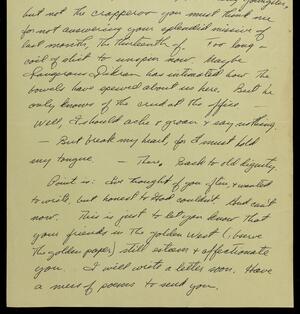 youngster,
but not the crapperoo you must think me
for not answering your splendid missive of
last month, the thirteenth of. Too long-
coil of shit to unwpon now. Maybe
Langerous Dikran has intimated how the
bowels have spewed about us here. But he
only knows of the crud at the office —
Well, I should ache & groan & say nothing.
— But break my heart, for I must hold
my tongue. — There, back to old dignity.
Point is: I've thought of you often & wanted
to write, but honest to God couldn't. And can't
now. This is just to let you know that
your friends in The Golden West (observe
the golden paper) still esteem & affectionate
you. I will write a letter soon. Have
a mess of poems to send you.